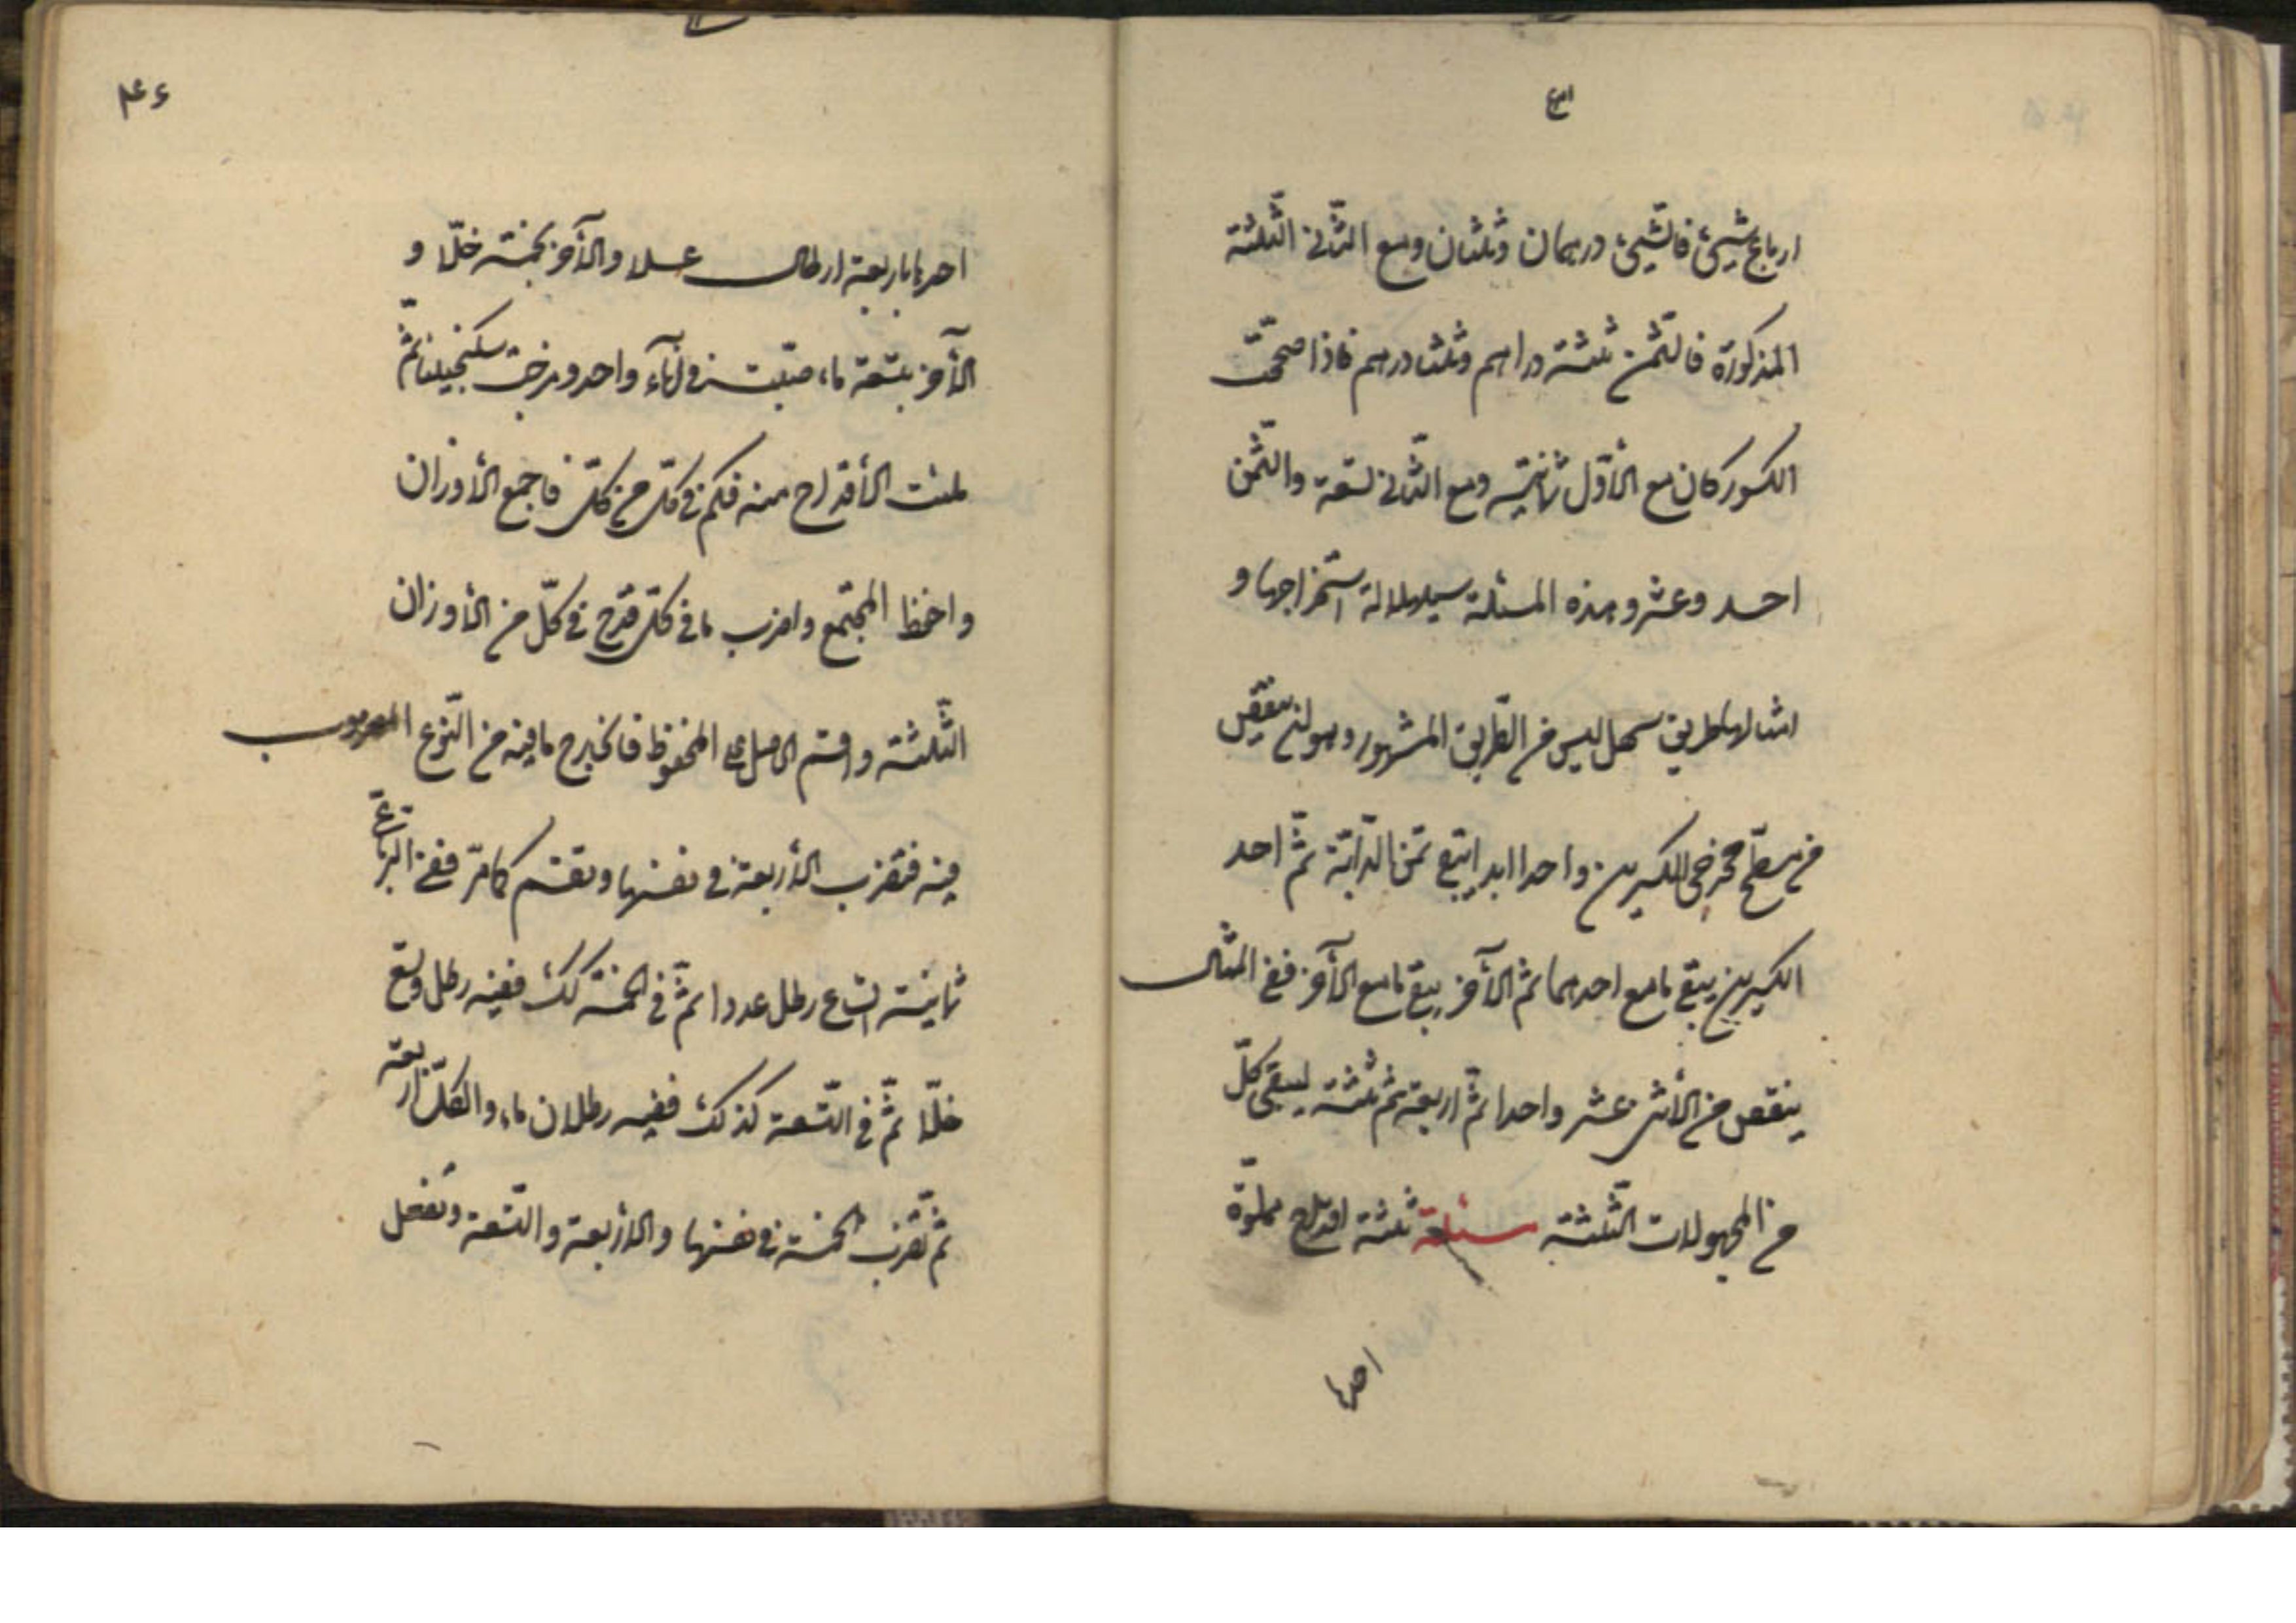 ارباع شيئ فالشّيئ درهمان وثلثان ومع الثّانى الثّلثة
المذكورة فالثّمن ثلثة دراهم وثلثا درهم فاذا صحّحت
الكسور كان مع الأوّل ثمانية ومع الثّانى تسعة والثّمن
احد وعشر وهذه المسئلة سيالة استخراجها و
امثالها طريق سهل ليس من الطّريق المشهور وهو ان ينقص
من مسطّح مخرجى الكسرين واحدا ابدا يبقى ثمن الدّابّة ثمّ احد
الكسرين يبقى ما مع احدهما ثمّ الآخر يبقى ما مع الآخر ففى المثال
ينقص من الأثنى عشر واحدا ثمّ اربعة ثمّ ثلثة ليبقى كلّ
من المجهولات الثّلثة مسئلة ثلثة اقداح مملوّة
احدها
احدها باربعة ارطال عسلا والآخر بخمسة خلّا و
الآخر بتسعة ماء صبّت فى اناء واحد ومزجت سكنجبينا ثمّ
ملئت الأقداح منه فكم فى كلّ من كلّ فاجمع الأوزان
واحفظ المجتمع واضرب ما فى كلّ قدح فى كلّ من الأوزان
الثّلثة واقسم الحاصل على المحفوظ فالخارج ما فيه من النّوع المضروب
فيه فتضرب الأربعة فى نفسها وتقسم كما مرّ ففى الرّباعىّ
ثمانية اتساع رطل عددا ثمّ فى الخمسة كك ففيه رطل وتسع
خلّا ثمّ فى التّسعة كذلك ففيه رطلان ماء والكلّ اربعة
ثمّ تضرب الخمسة فى نفسها والأربعة والتّسعة وتفعل